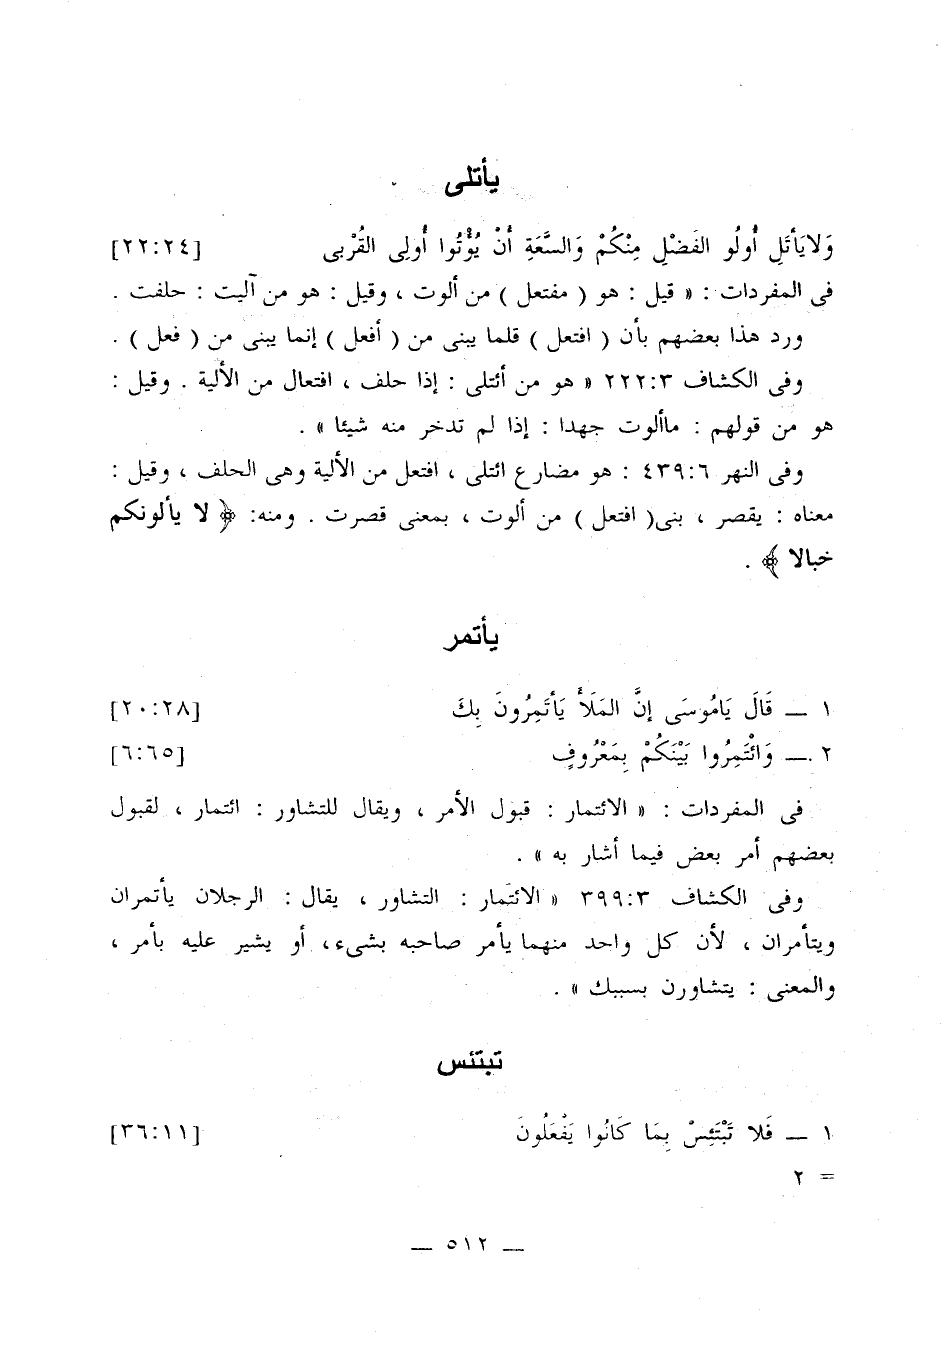 يأتلى
وَلايَأتَلِ أُولُو الفَضْلِ مِنْكُمْ وَالسَّعَةِ أنْ يُؤْتُوا أُولِى القُرْبى [٢٢:٢٤]
فى المفردات : « قيل : هو ( مفتعل ) من ألوت ، وقيل : هو من آليت : حلفت .
ورد هذا بعضهم بأن ( افتعل ) قلما يبنى من ( أفعل ) إنما يبنى من ( فعل ) .
وفى الكشاف ٢٢٢:٣ « هو من أئتلى : إذا حلف ، افتعال من الألية . وقيل :
هو من قولهم : ماألوت جهدا : إذا لم تدخر منه شيئا » .
وفى النهر ٤٣٩:٦ : هو مضارع ائتلى ، افتعل من الألية وهى الحلف ، وقيل :
معناه : يقصر ، بنى( افتعل ) من ألوت ، بمعنى قصرت . ومنه: ﴿ لا يألونكم
خبالا ﴾ .
يأتمر
١ ــ قَالَ يَامُوسَى إنَّ المَلَأَ يَأتَمِرُونَ بِكَ [٢٠:٢٨]
٢ ــ وَائْتَمِرُوا بَيْنَكُمْ بِمَعْرُوفٍ [٦:٦٥]
فى المفردات : « الائتمار : قبول الأمر ، ويقال للتشاور : ائتمار ، لقبول
بعضهم أمر بعض فيما أشار به » .
وفى الكشاف ٣٩٩:٣ « الائتمار : التشاور ، يقال : الرجلان يأتمران
ويتأمران ، لأن كل واحد منهما يأمر صاحبه بشىء، أو يشير عليه بأمر ،
والمعنى : يتشاورن بسببك » .
تبتئس
١ ــ فَلا تَبْتَئِسْ بِمَا كَانُوا يَفْعَلُونَ [٣٦:١١]
= ٢
ــ ٥١٢ ــ